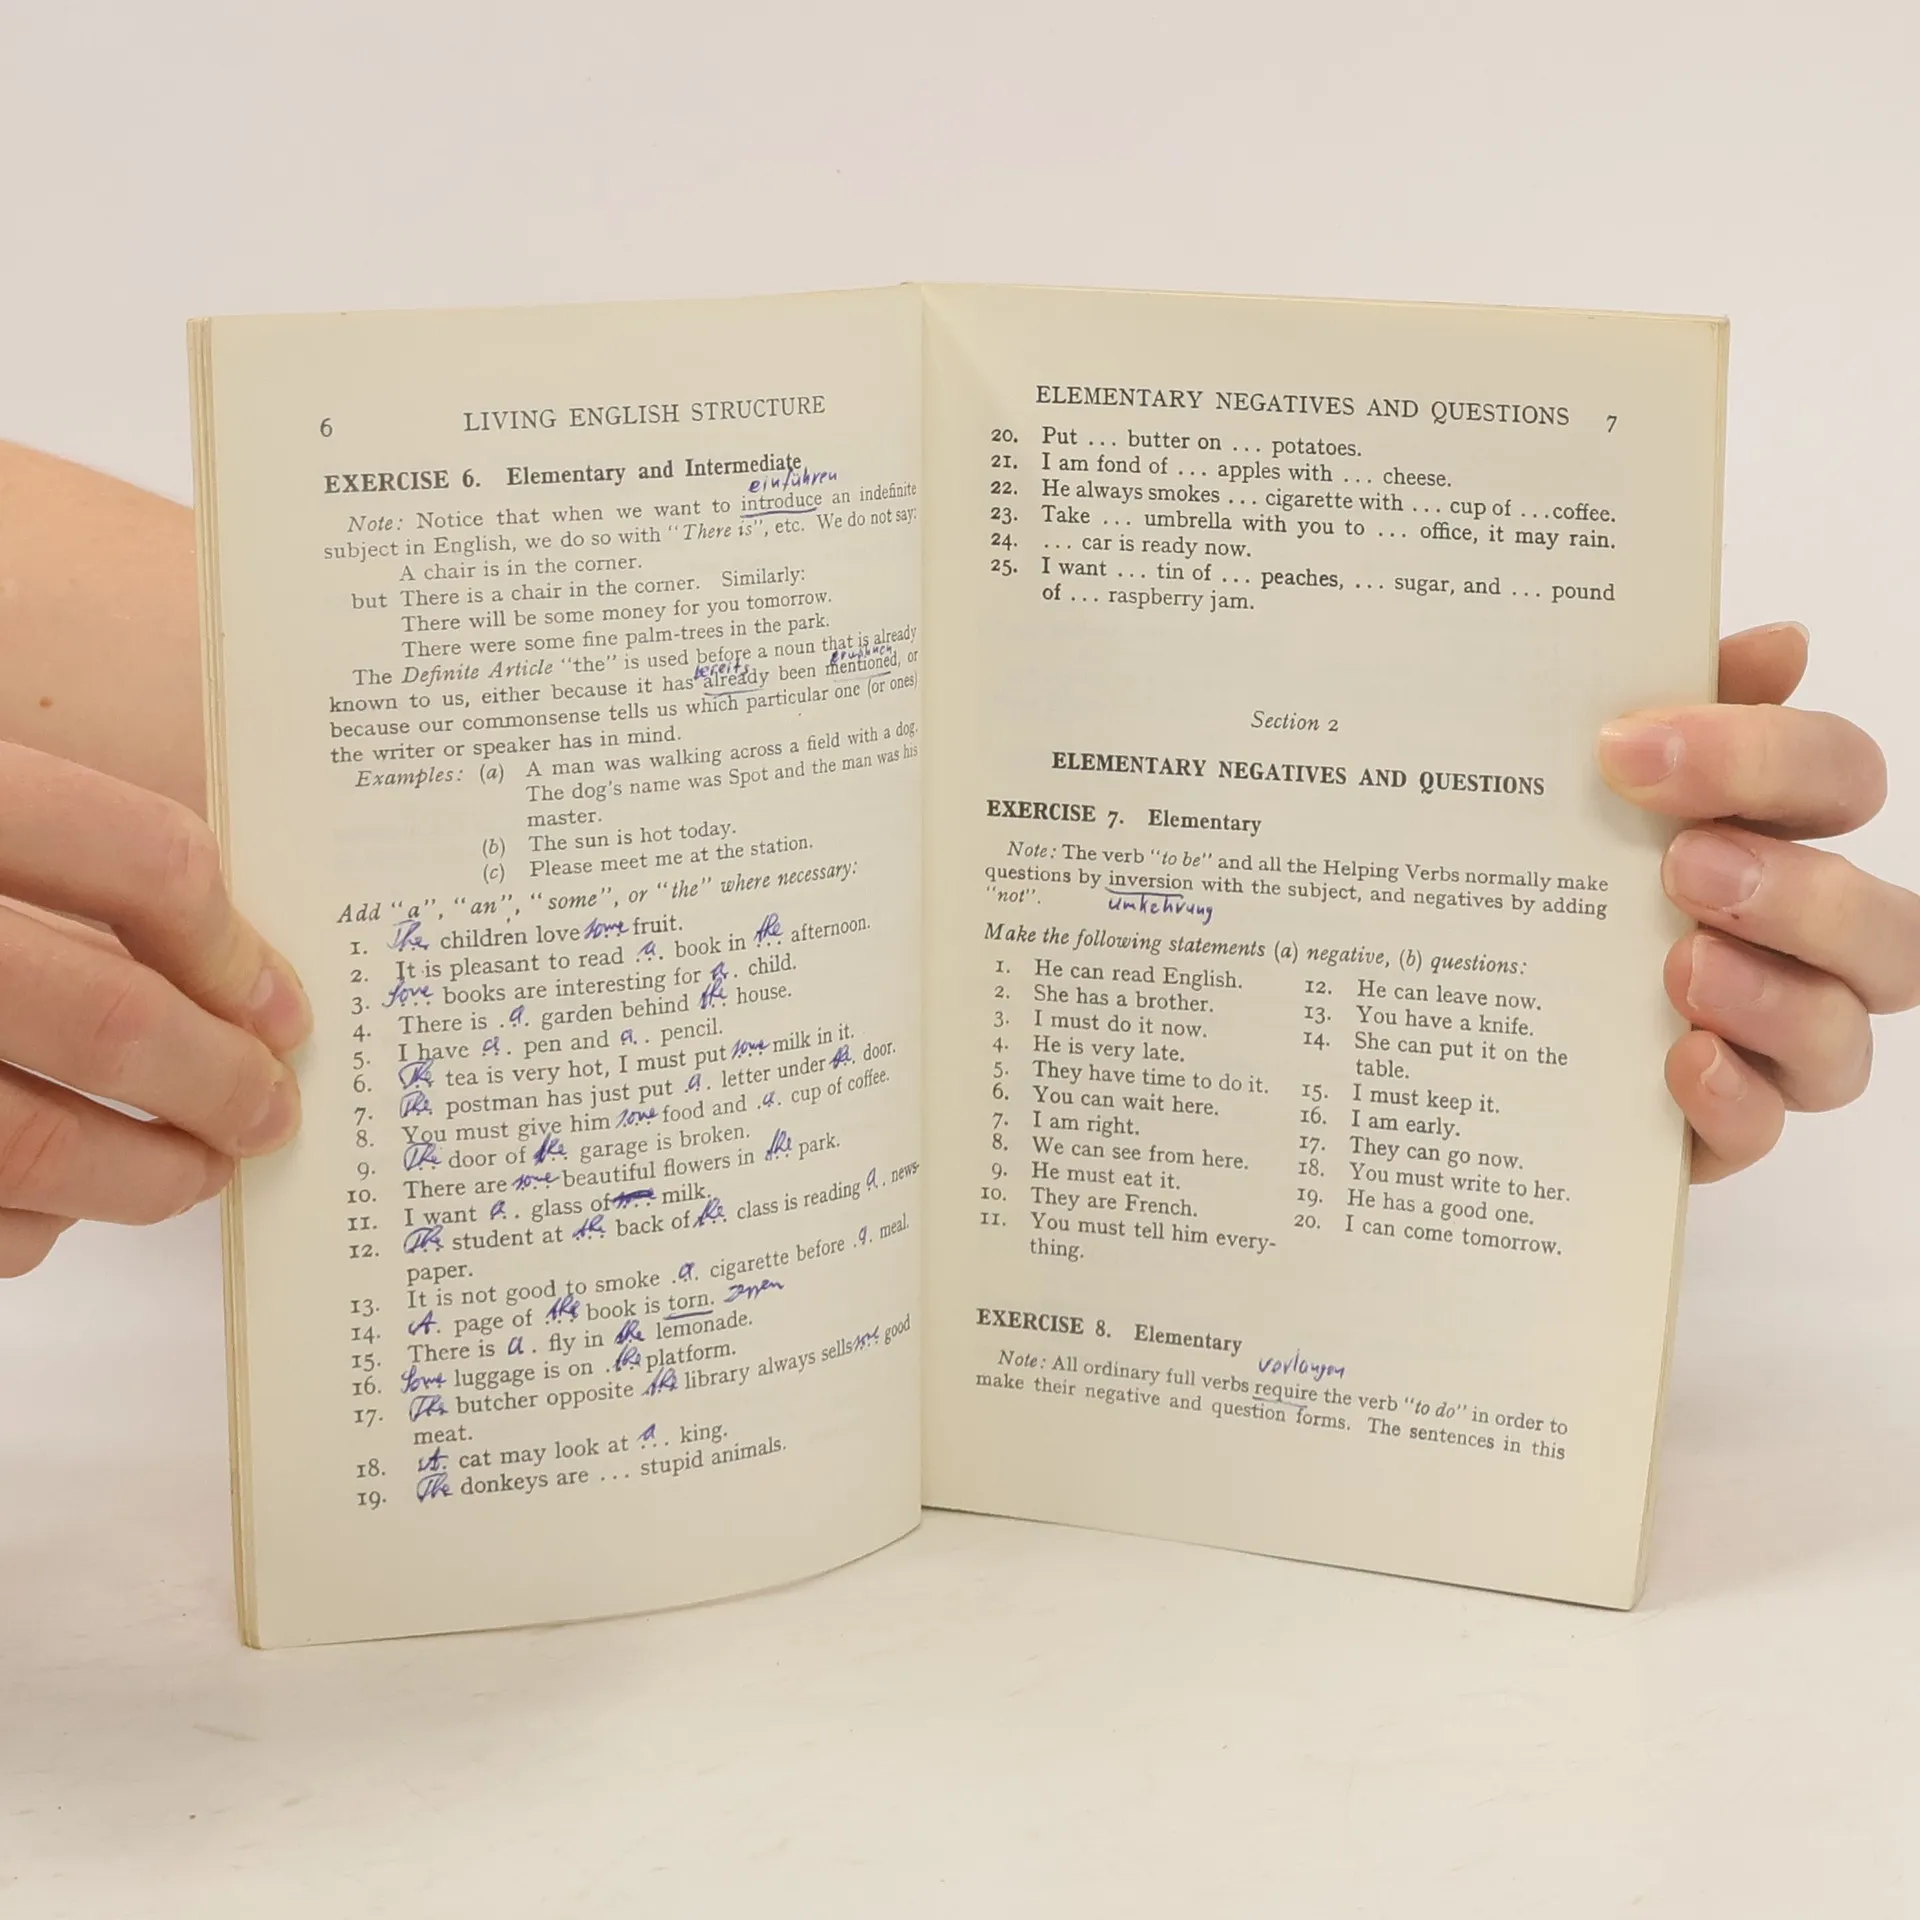 6 LIVING ENGLISH STRUCTURE
EXERCISE 6. Elementary and Intermediate
einführen
Note: Notice that when we want to introduce an indefinite
subject in English, we do so with "There is", etc. We do not say:
A chair is in the corner.
but There is a chair in the corner. Similarly:
There will be some money for you tomorrow.
There were some fine palm-trees in the park.
The Definite Article "the" is used before a noun that is already
bereits
known to us, either because it has already been mentioned, or
because our commonsense tells us which particular one (or ones)
the writer or speaker has in mind.
Examples: (a) A man was walking across a field with a dog.
The dog's name was Spot and the man was his
master.
(b) The sun is hot today.
(c) Please meet me at the station.
Add "a", "an", "some", or "the" where necessary:
1. The children love some fruit.
2. It is pleasant to read a book in the afternoon.
3. Some books are interesting for a child.
4. There is a garden behind the house.
5. I have a pen and a pencil.
6. The tea is very hot, I must put some milk in it.
7. The postman has just put a letter under the door.
8. You must give him some food and a cup of coffee.
9. The door of the garage is broken.
10. There are some beautiful flowers in the park.
11. I want a glass of some milk.
12. The student at the back of the class is reading a news-
paper.
13. It is not good to smoke a cigarette before a meal.
14. A page of the book is torn.
15. There is a fly in the lemonade.
16. Some luggage is on the platform.
17. The butcher opposite the library always sells some good
meat.
18. A cat may look at a king.
19. The donkeys are ... stupid animals.
ELEMENTARY NEGATIVES AND QUESTIONS 7
20. Put ... butter on ... potatoes.
21. I am fond of ... apples with ... cheese.
22. He always smokes ... cigarette with ... cup of ...coffee.
23. Take ... umbrella with you to ... office, it may rain.
24. ... car is ready now.
25. I want ... tin of ... peaches, ... sugar, and ... pound
of ... raspberry jam.
Section 2
ELEMENTARY NEGATIVES AND QUESTIONS
EXERCISE 7. Elementary
Note: The verb "to be" and all the Helping Verbs normally make
questions by inversion with the subject, and negatives by adding
"not".
Umkehrung
Make the following statements (a) negative, (b) questions:
1. He can read English.
2. She has a brother.
3. I must do it now.
4. He is very late.
5. They have time to do it.
6. You can wait here.
7. I am right.
8. We can see from here.
9. He must eat it.
10. They are French.
11. You must tell him every-
thing.
12. He can leave now.
13. You have a knife.
14. She can put it on the
table.
15. I must keep it.
16. I am early.
17. They can go now.
18. You must write to her.
19. He has a good one.
20. I can come tomorrow.
EXERCISE 8. Elementary
verlangen
Note: All ordinary full verbs require the verb "to do" in order to
make their negative and question forms. The sentences in this